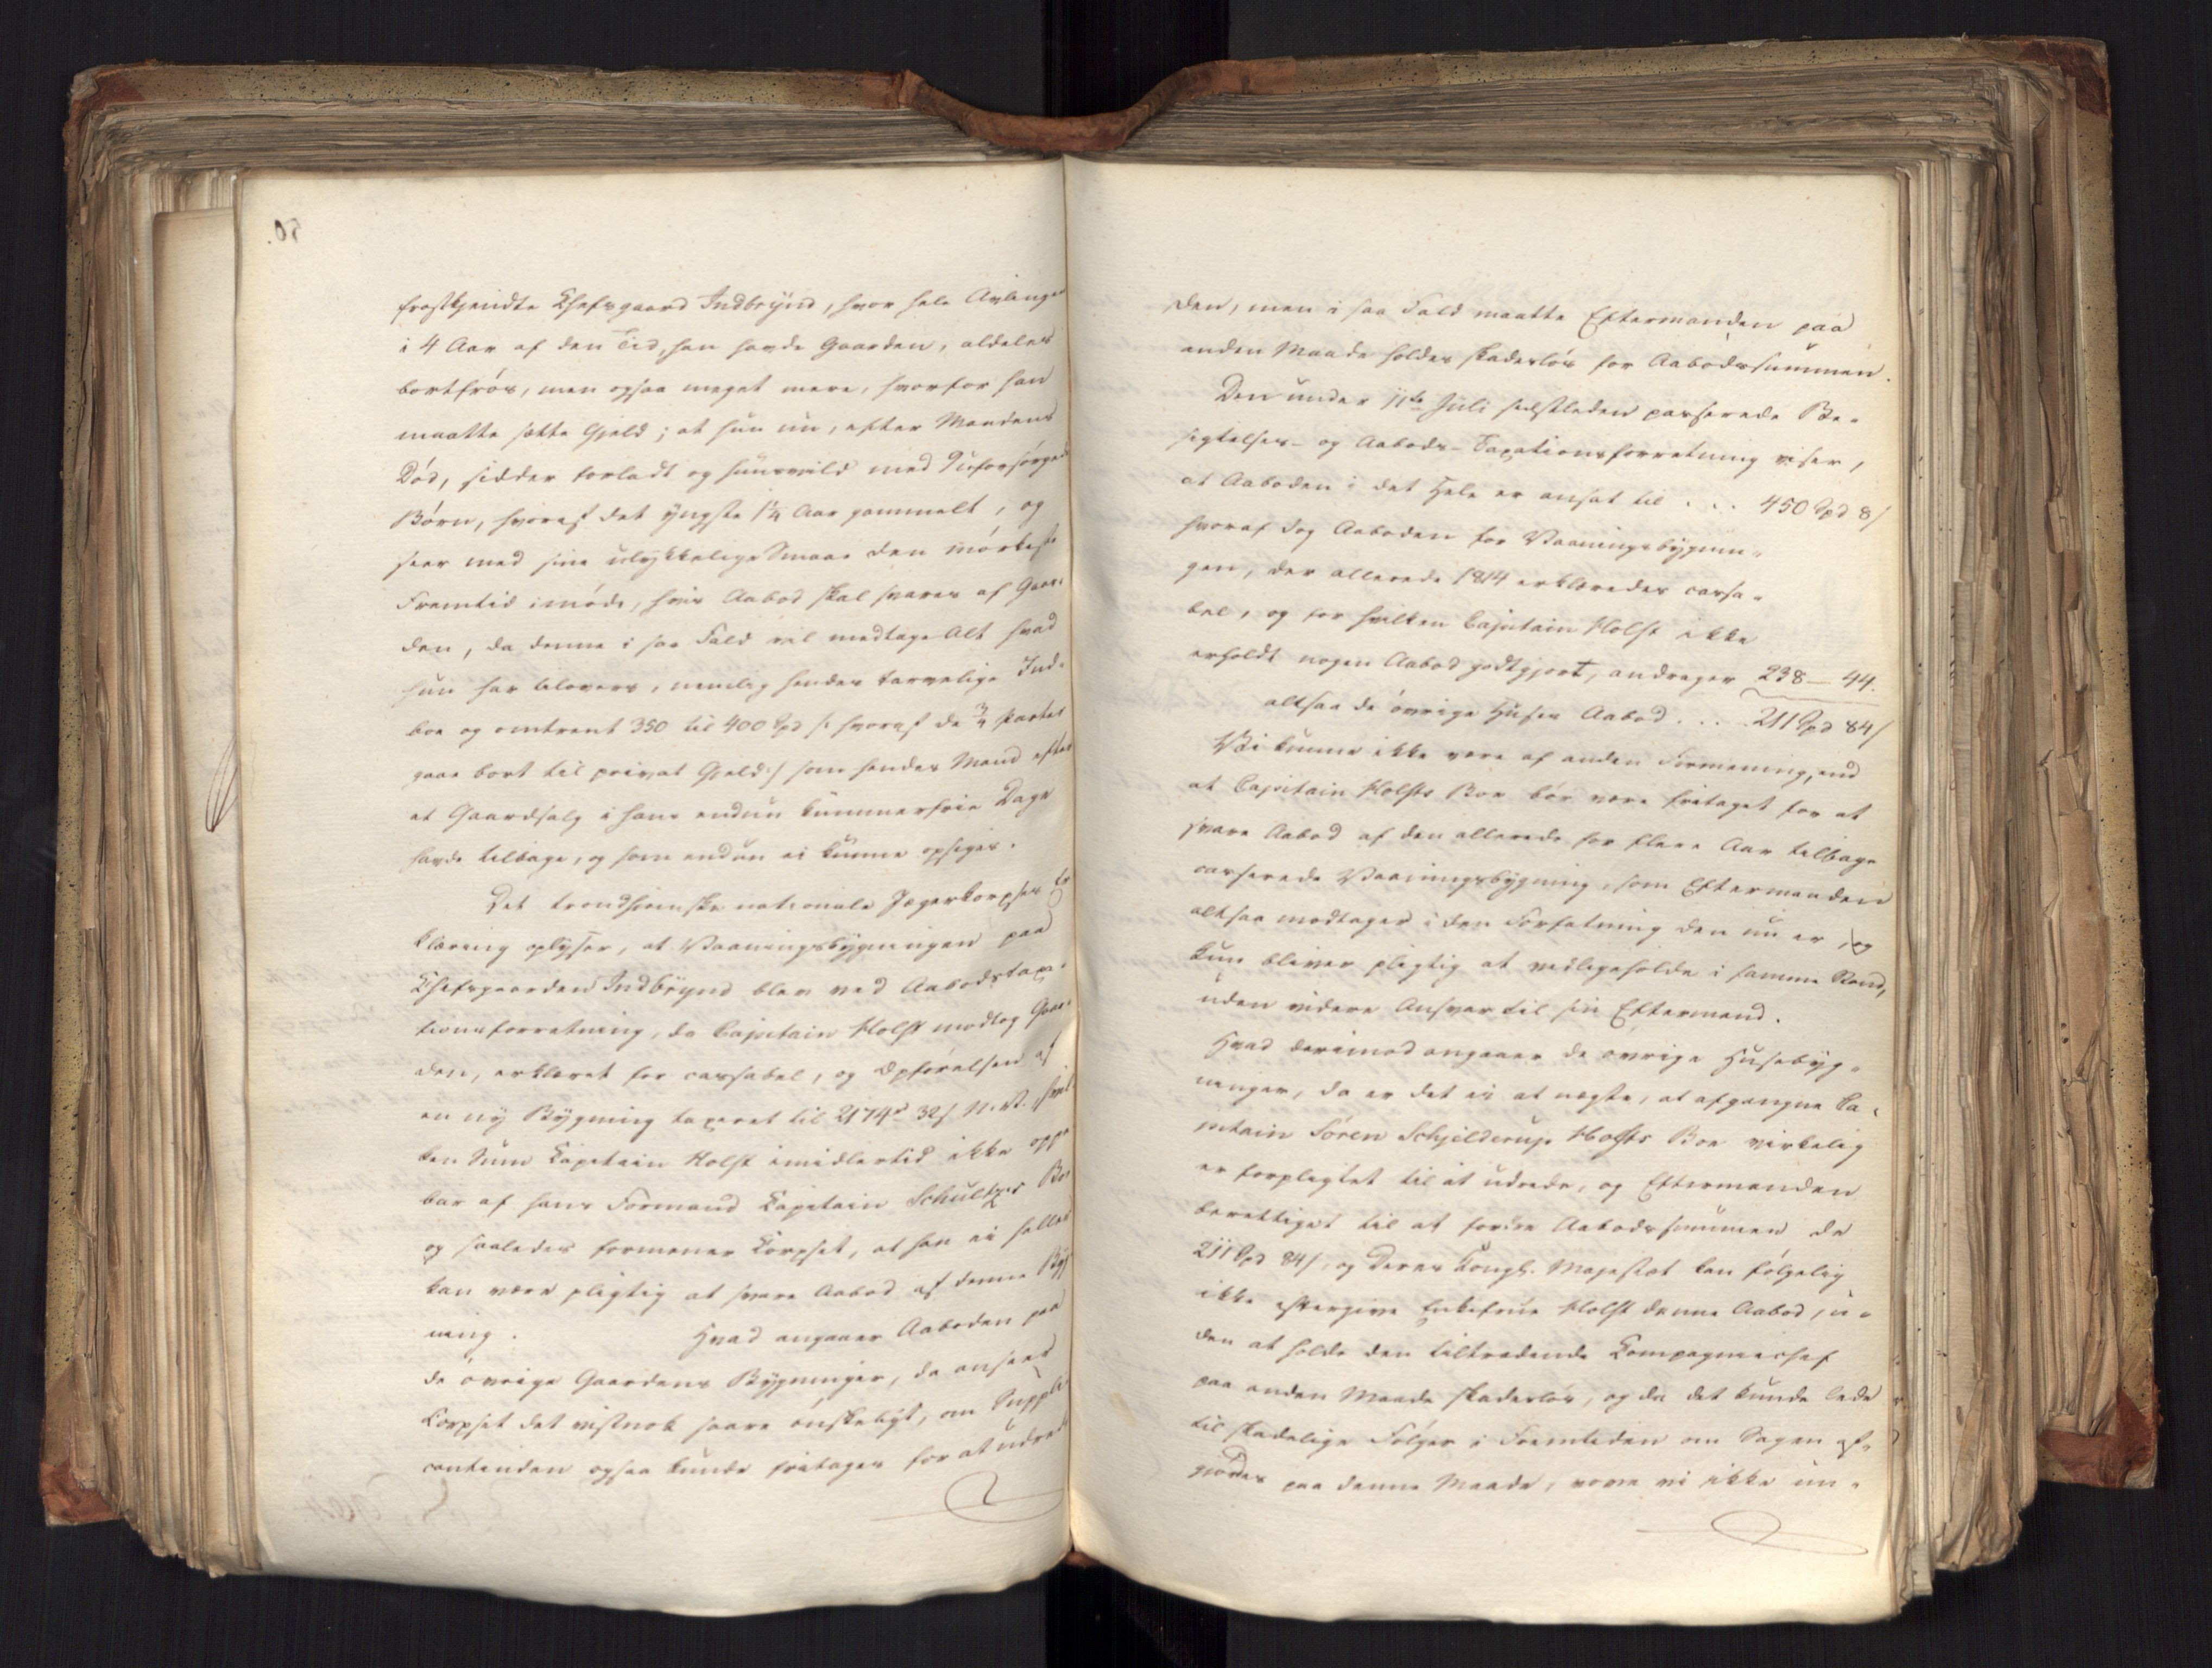 frostkjendte Chefsgaard Indbrynd, hvor hele Avlingen
i 4 Aar af den Tid, han havde Gaarden, aldeles
bortfrós, men ogsaa meget mere, hvorfor han
maatte sætte Gjeld; at hun nu, efter Mandens
Død, sidder forladt og huusvild med uforsørgede
Børn, hvoraf det yngste 1¼ Aar gammelt, og
seer med sine ulykkelige Smaae den mørkeste
Fremtid imøde, hvis Aabod skal svares af Gaar-
den, da denne i saa Fald vil medtage Alt hvad
hun har tilovers, nemlig hendes tarvelige Ind-
boe og omtrent 350 til 400 Spd /: hvoraf de ¾ Parter
gaae bort til privat Gjeld :/ som hendes Mand efter
et Gaardsalg i hans endnu kummerfrie Dage
havde tilbage, og som endnu ei kunne opsiges.
Det trondhjemske nationale Jægerkorpses Er-
klæring oplyser, at Vaaningsbygningen paa
Chefsgaarden Indbrynd blev ved Aabodstaxa-
tionsforretning, da Capitain Holst modtog Gaar-
den, erklæret for cassabel, og Opførelsen af
en ny Bygning taxeret til 2174 rd 32 s N. V. hvil-
ken Sum Kapitain Holst imidlertid ikke oppe
bar af hans Formand Kapitain Schultzes Boe
og saaledes formener Korpset, at han ei heller
kan være pligtig at svare Aabod af denne Byg
ning. Hvad angaaer Aaboden paa
de øvrige Gaardens Bygninger, da anseer
Korpset det vistnok saare ønskeligt, om Suppli-
cantinden ogsaa kunde fritages for at udrede
den, men i saa Fald maatte Eftermanden paa
anden Maade holdes skadesløs for Aabodssummen.
Den under 11te Juli sidstleden passerede Be-
sigtelses- og Aabods-Taxationsforretning viser,
at Aaboden i det Hele er ansat til . . . 450 Spd 8 s
hvoraf dog Aaboden for Vaaningsbygnin-
gen, der allerede 1814 erklæredes cassa-
bel, og for hvilken Capitain Holst ikke
erholdt nogen Aabod godtgjort, andrager 238 – 44.
altsaa de øvrige Huses Aabod . . . . 211 Spd 84 s
Vi kunne ikke være af anden Formening, end
at Capitain Holsts Boe bør være fritaget for at
svare Aabod af den allerede for flere Aar tilbage
casserede Vaaningsbygning, som Eftermanden
altsaa modtager i den Forfatning den nu er, og
kun bliver pligtig at vedligeholde i samme Stand,
uden videre Ansvar til sin Eftermand.
Hvad derimod angaaer de øvrige Husebyg-
ninger, da er det ei at negte, at afgangne Ca-
pitain Søren Schjelderup Holsts Boe virkelig
er forpligtet til at udrede, og Eftermanden
berettiget til at fordre Aabodssummen de
211 Spd 84 s, og Deres Kongl. Majestæt kan følgelig
ikke eftergive Enkefrue Holst denne Aabod, u-
den at holde den tiltrædende Kompagniechef
paa anden Maade skadesløs, og da det kunde lede
til skadelige Følger i Fremtiden om Sagen af-
gjordes paa denne Maade, vove vi ikke un-